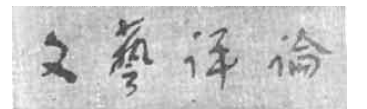 文藝评論